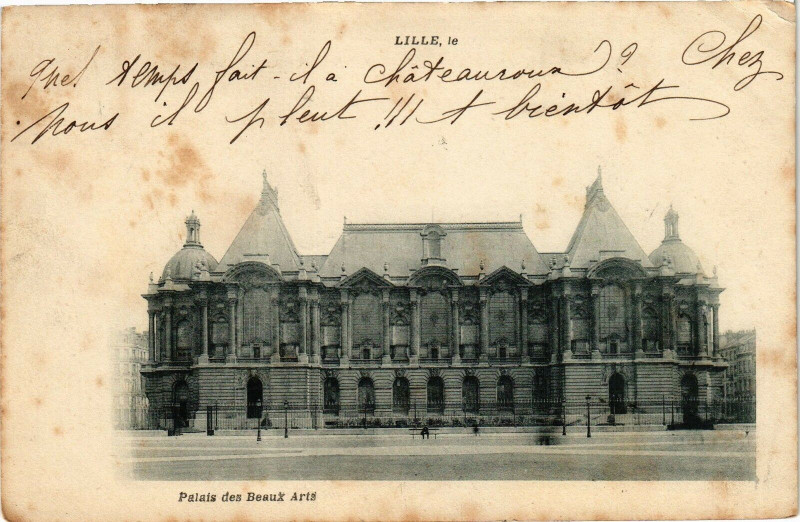 LILLE, le
Quel temps fait-il à châteauroux ? Chez
nous il pleut !!! A bientôt
Palais des Beaux Arts